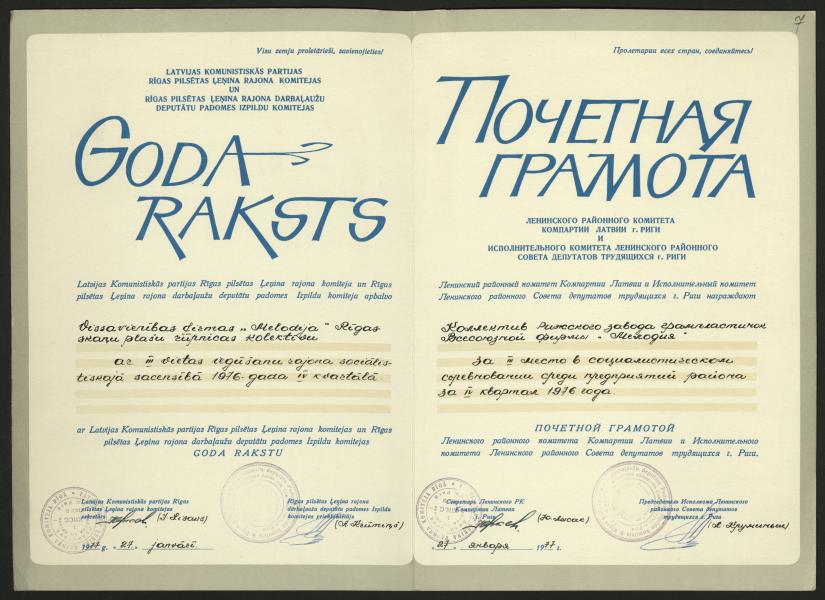 7
Visu zemju proletārieši, savienojieties!
LATVIJAS KOMUNISTISKĀS PARTIJAS
RĪGAS PILSĒTAS ĻEŅINA RAJONA KOMITEJAS
UN
RĪGAS PILSĒTAS ĻEŅINA RAJONA DARBAĻAUŽU
DEPUTĀTU PADOMES IZPILDU KOMITEJAS
GODA
RAKSTS
Latvijas Komunistiskās partijas Rīgas pilsētas Ļeņina rajona komiteja un Rīgas
pilsētas Ļeņina rajona darbaļaužu deputātu padomes Izpildu komiteja apbalvo
Vissavienības firmas „Melodija" Rīgas
skaņu plašu rūpnīcas kolektīvu
ar III vietas iegūšanu rajona sociālis-
tiskajā sacensībā 1976. gada IV kvartālā.
ar Latvijas Komunistiskās partijas Rīgas pilsētas Ļeņina rajona komitejas un Rīgas
pilsētas Ļeņina rajona darbaļaužu deputātu padomes Izpildu komitejas
GODA RAKSTU
Latvijas Komunistiskās partijas Rīgas
pilsētas Ļeņina rajona komitejas
sekretārs
Rīgas pilsētas Ļeņina rajona
darbaļaužu deputātu padomes Izpildu
komitejas priekšsēdētājs
1977. g. 27. janvārī.
Пролетарии всех стран, соединяйтесь!
ПОЧЕТНАЯ
ГРАМОТА
ЛЕНИНСКОГО РАЙОННОГО КОМИТЕТА
КОМПАРТИИ ЛАТВИИ г. РИГИ
И
ИСПОЛНИТЕЛЬНОГО КОМИТЕТА ЛЕНИНСКОГО РАЙОННОГО
СОВЕТА ДЕПУТАТОВ ТРУДЯЩИХСЯ г. РИГИ
Ленинский районный комитет Компартии Латвии и Исполнительный комитет
Ленинского районного Совета депутатов трудящихся г. Риги награждают
Коллектив Рижского завода грампластинок
Всесоюзной фирмы „Мелодия"
за III место в социалистическом
соревновании среди предприятий района
за IV квартал 1976 года.
ПОЧЕТНОЙ ГРАМОТОЙ
Ленинского районного комитета Компартии Латвии и Исполнительного
комитета Ленинского районного Совета депутатов трудящихся г. Риги.
Секретарь Ленинского РК
Компартии Латвии
г. Риги
Председатель Исполкома Ленинского
районного Совета депутатов
трудящихся г. Риги
(А. Круминьш)
27 января 1977 г.